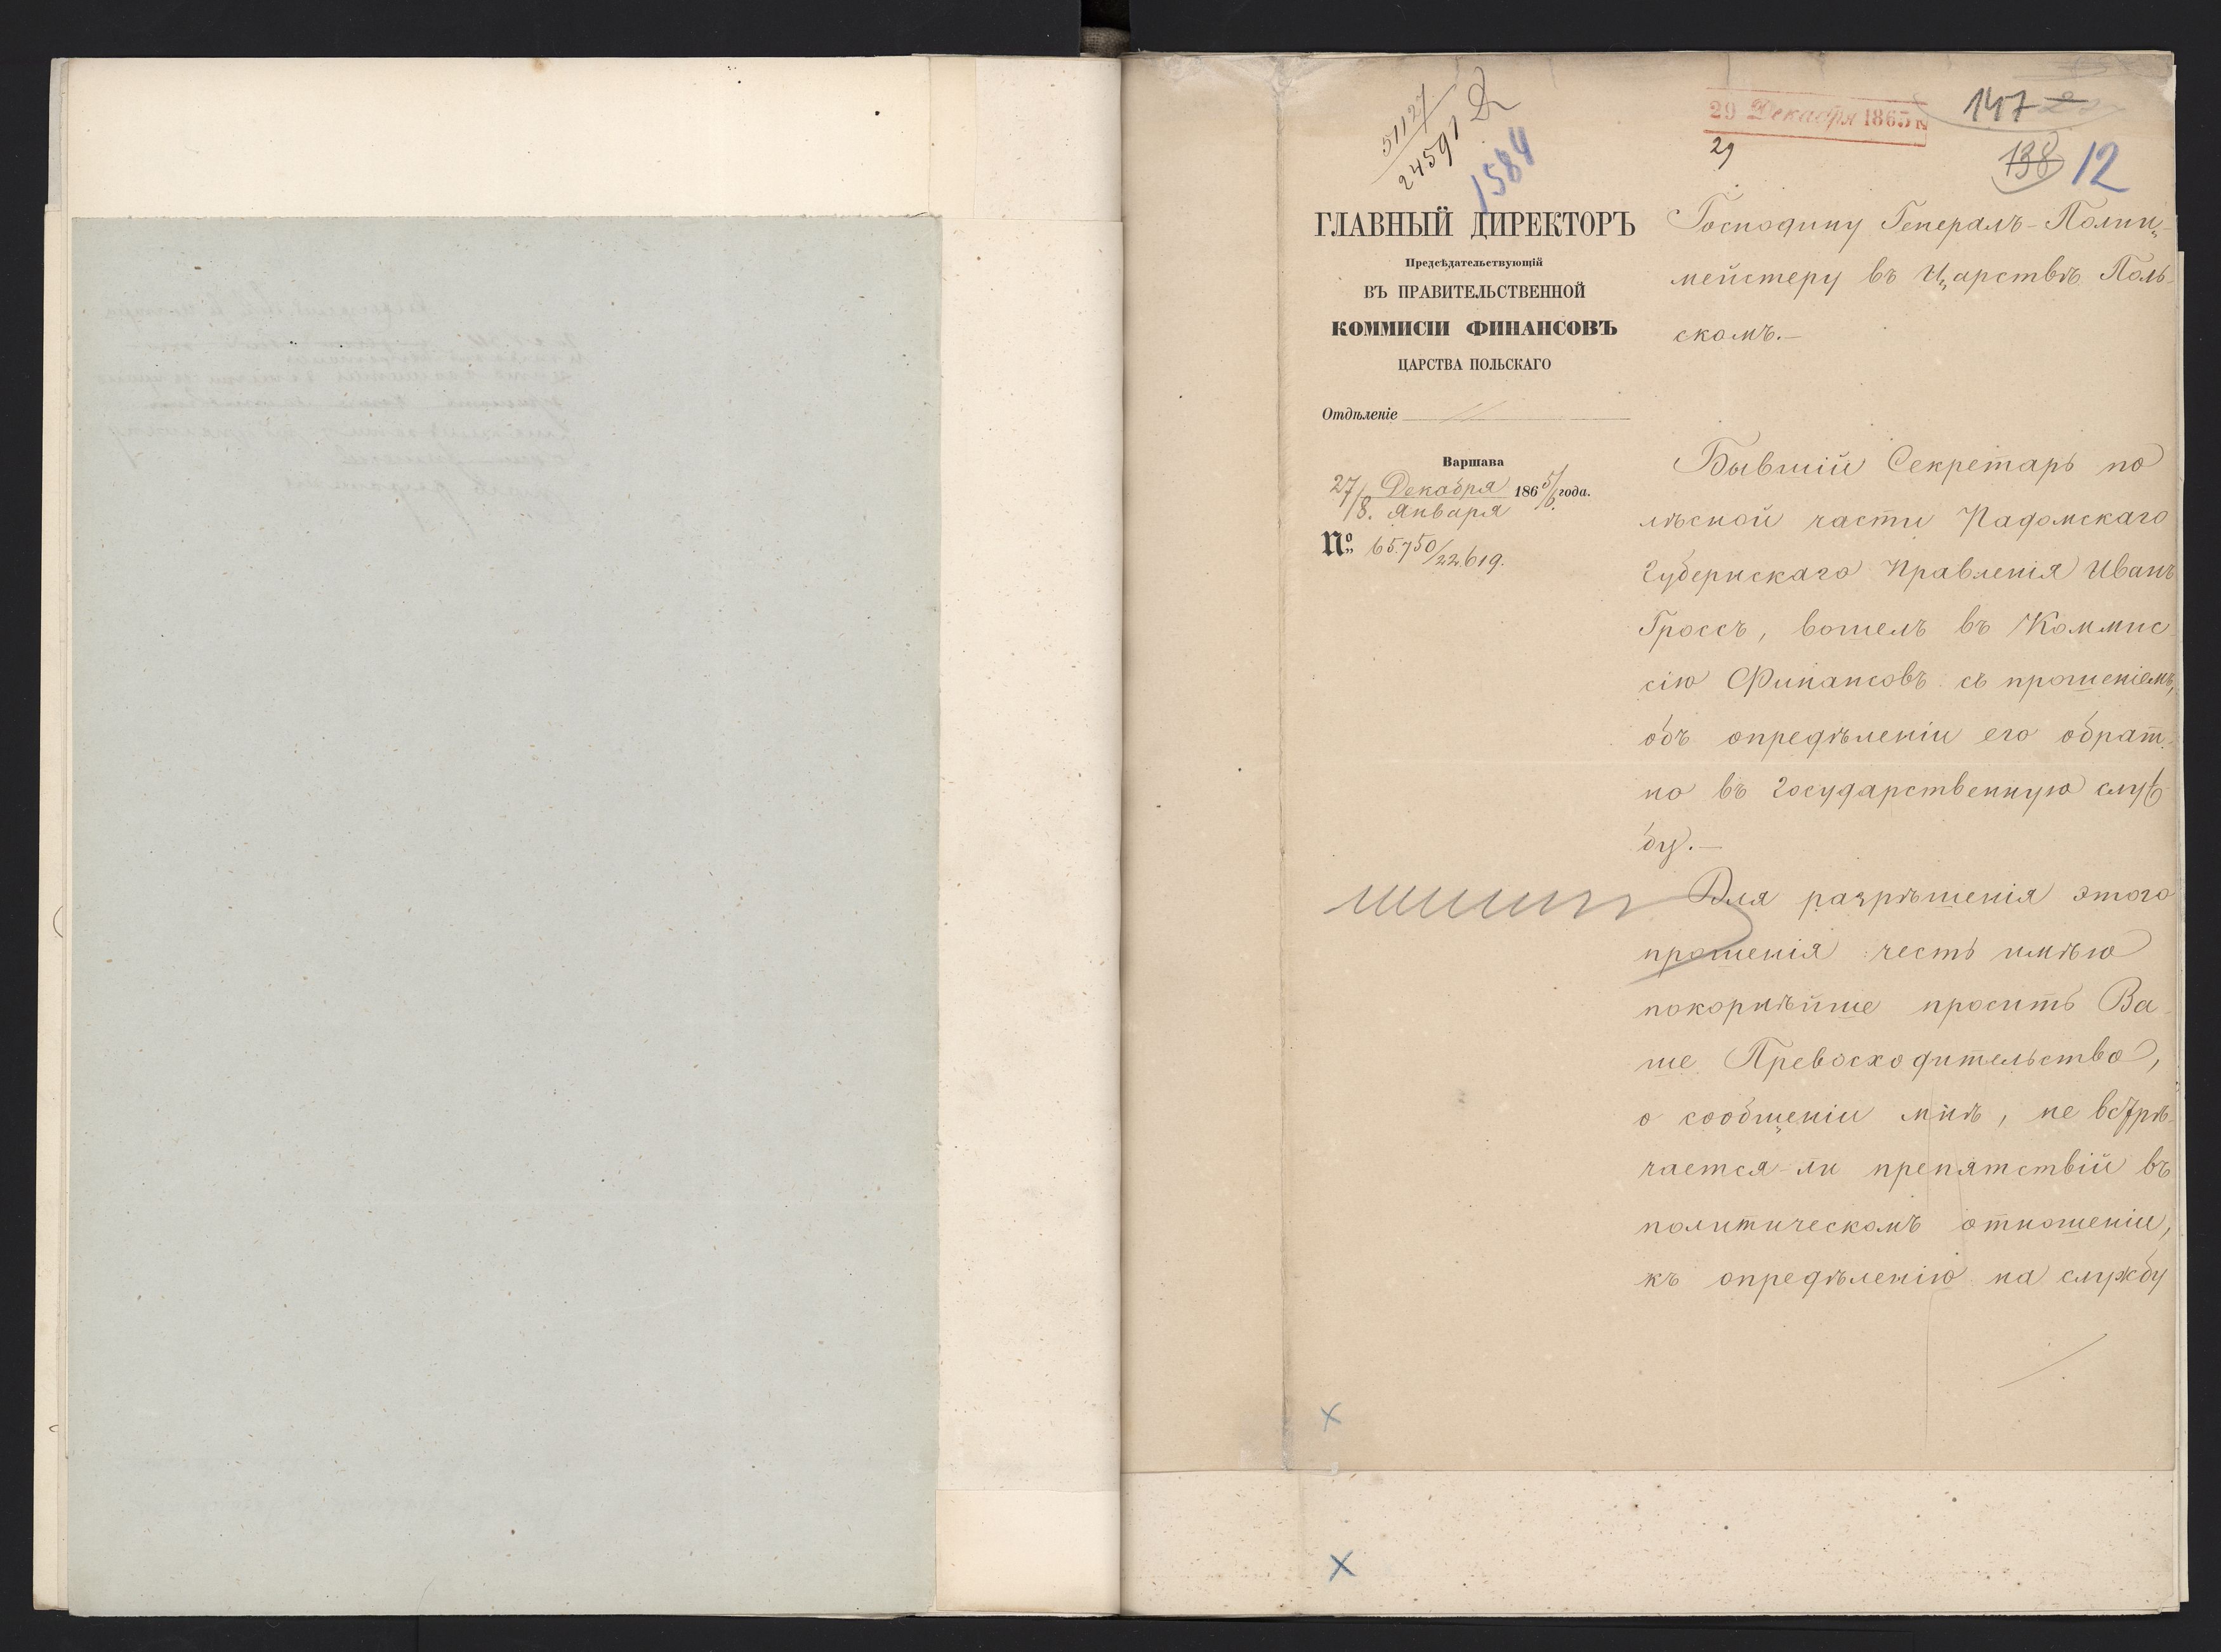 51127
24591
1584
29 Декабря 1865 г.
29
147
138 12
ГЛАВНЫЙ ДИРЕКТОРЪ
Предсѣдательствующій
ВЪ ПРАВИТЕЛЬСТВЕННОЙ
КОММИСІИ ФИНАНСОВЪ
ЦАРСТВА ПОЛЬСКАГО
Отдѣленіе
Варшава
27/8. Декабря Января 1865/6 года.
№ 65.750/22.619.
Господину Генералъ-Полиц-
мейстеру въ Царствѣ Поль-
скомъ.—
Бывшій Секретарь по
лѣсной части Радомскаго
Губернскаго Правленія Иванъ
Гроссъ, вошелъ въ Коммис-
сію Финансовъ съ прошеніемъ,
объ опредѣленіи его обрат-
но въ Государственную служ-
бу.—
Для разрѣшенія этого
прошенія честь имѣю
покорнѣйше просить Ва-
ше Превосходительство,
о сообщеніи мнѣ, не встрѣ-
чается-ли препятствій въ
политическомъ отношеніи,
къ опредѣленію на службу